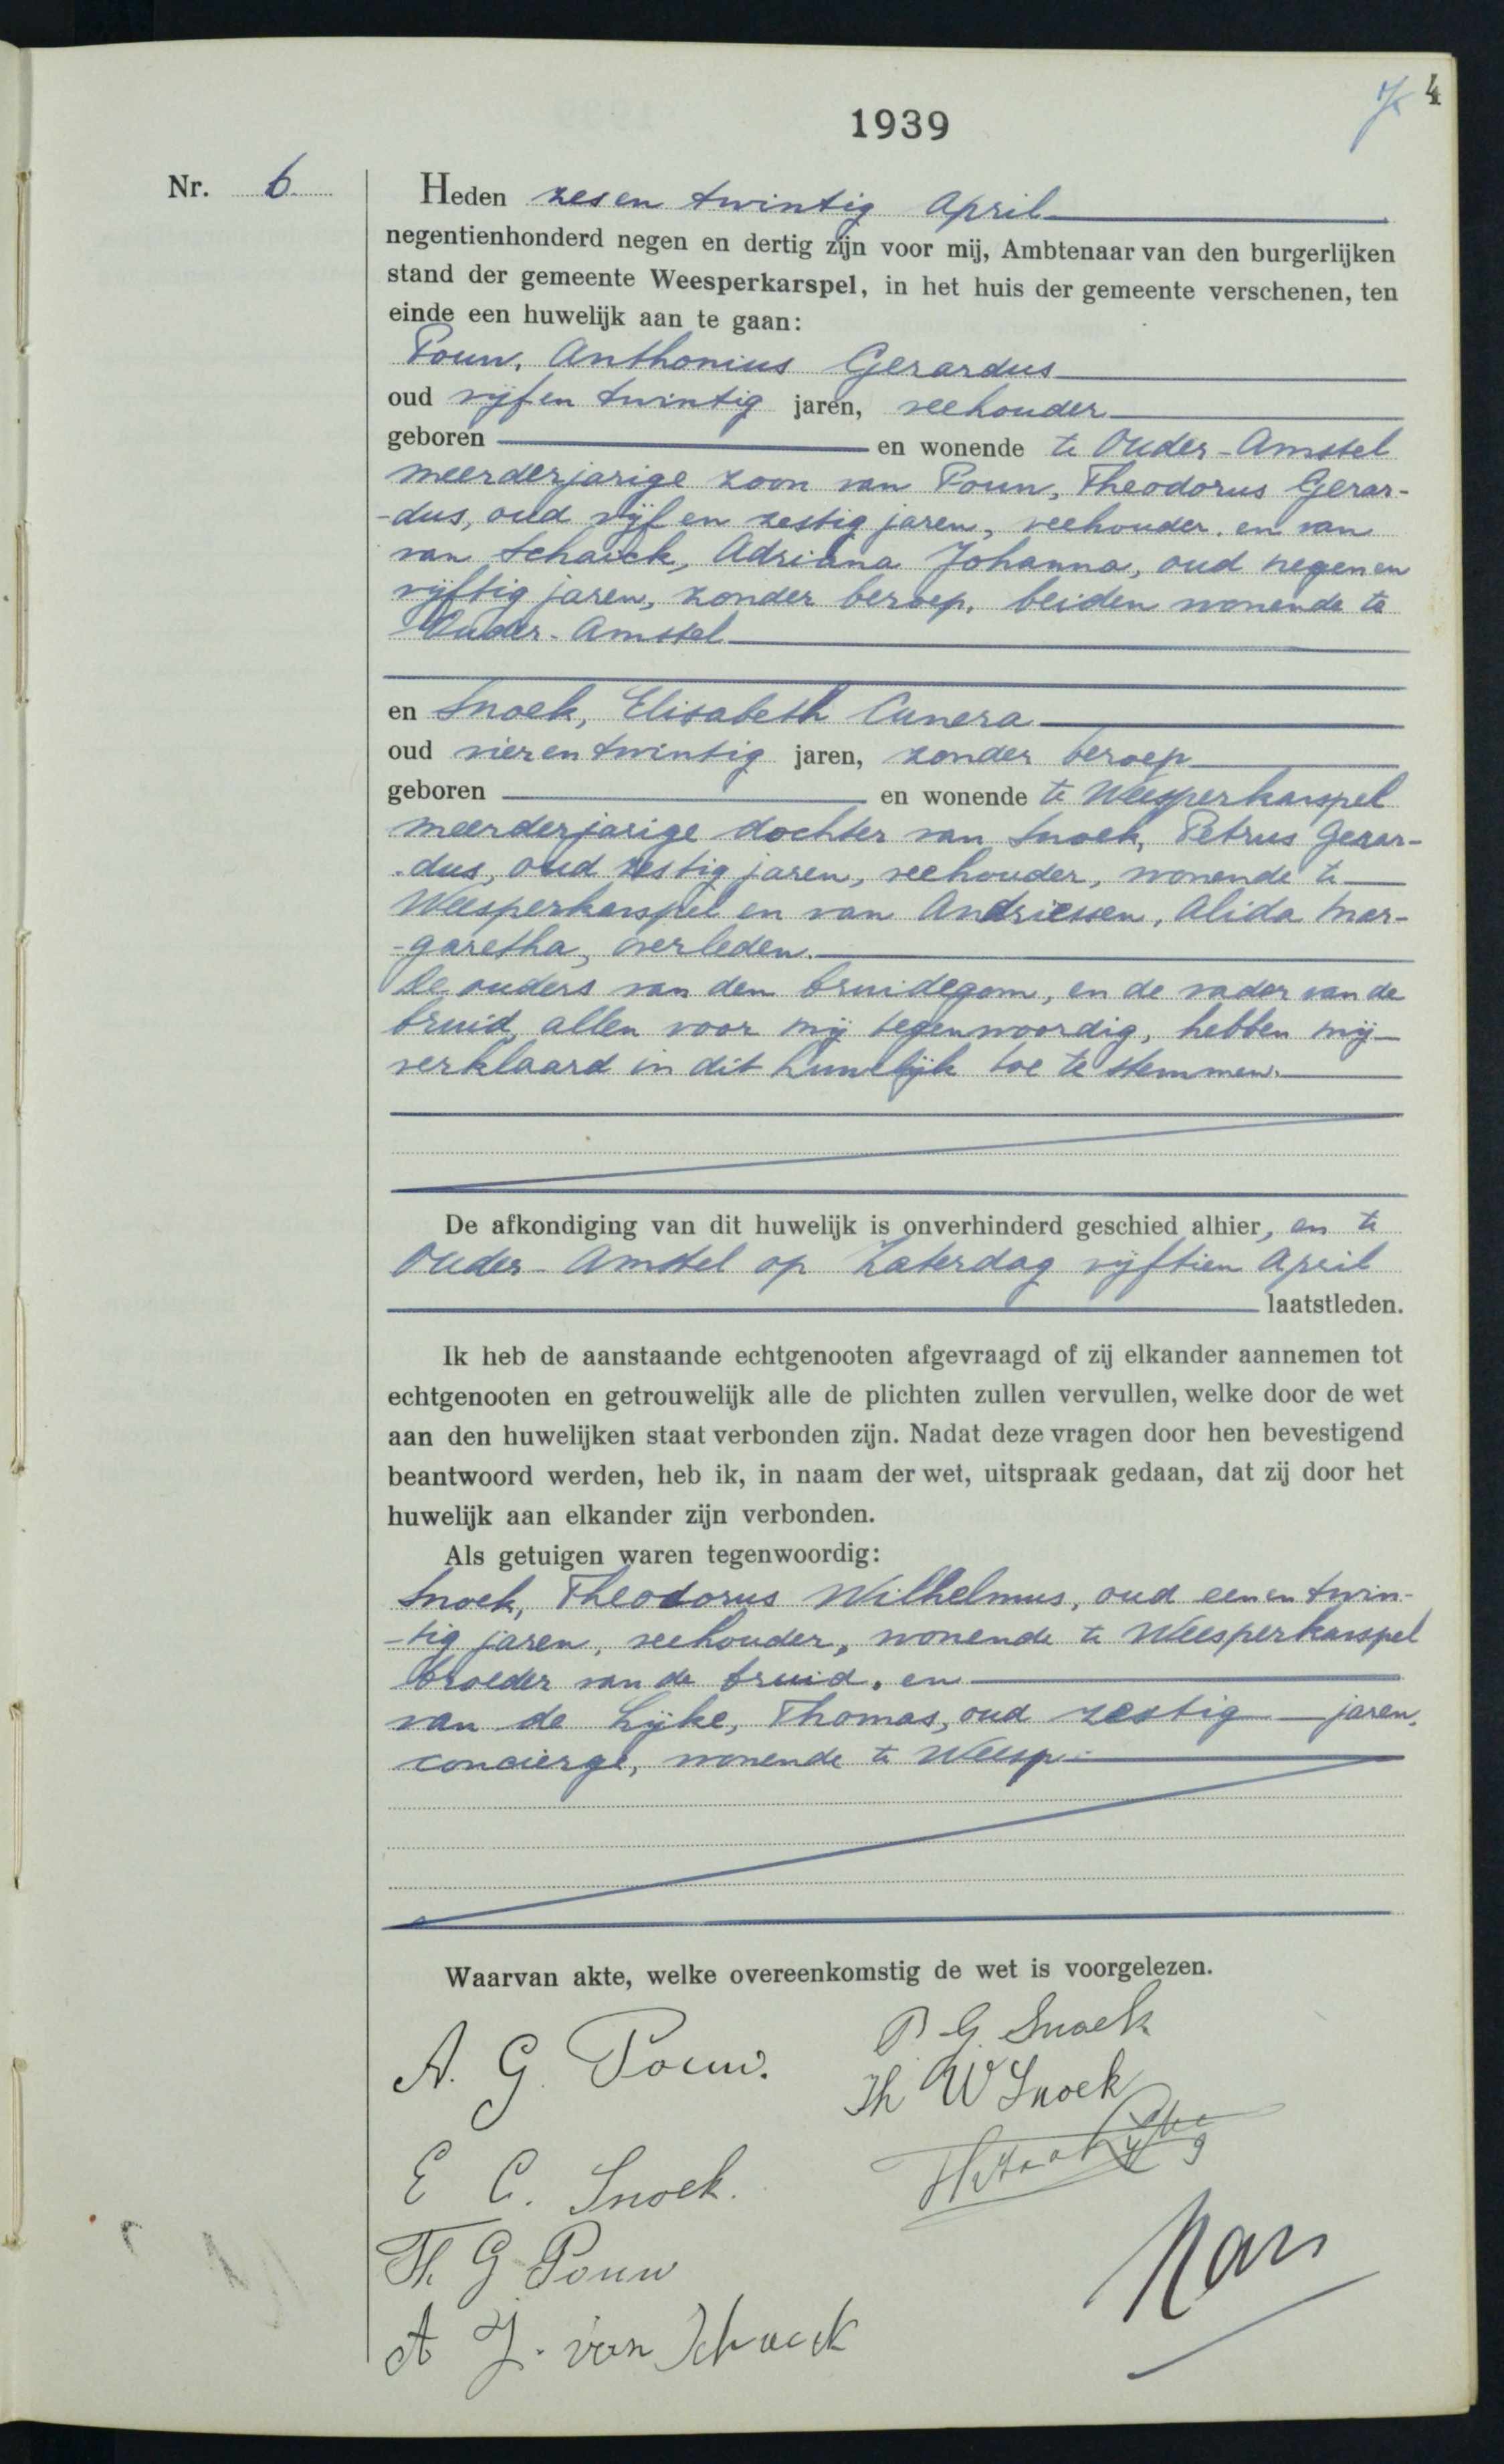 4
1939
Nr. 6
Heden zesen twintig April
negentienhonderd negen en dertig zijn voor mij, Ambtenaar van den burgerlijken
stand der gemeente Weesperkarspel, in het huis der gemeente verschenen, ten
einde een huwelijk aan te gaan:
Pouw, Anthonius Gerardus
oud vijfen twintig jaren, veehouder
geboren en wonende te Ouder-Amstel
meerderjarige zoon van Pouw, Theodorus Gerar-
-dus, oud vijf en zestig jaren, veehouder, en van
van Schaick, Adriana Johanna, oud negenen
vijftig jaren, zonder beroep, beiden wonende te
Ouder-Amstel
en Snoek, Elisabeth Cunera
oud vierentwintig jaren, zonder beroep
geboren en wonende te Weesperkarspel
meerderjarige dochter van Snoek, Petrus Gerar-
-dus, oud zestig jaren, veehouder, wonende te
Weesperkarspel en van Andriessen, Alida Mar-
-garetha, overleden.
De ouders van den bruidegom, en de vader van de
bruid, allen voor mij tegenwoordig, hebben mij
verklaard in dit huwelijk toe te stemmen.
De afkondiging van dit huwelijk is onverhinderd geschied alhier, en te
Ouder-Amstel op Zaterdag vijftien April
laatstleden.
Ik heb de aanstaande echtgenooten afgevraagd of zij elkander aannemen tot
echtgenooten en getrouwelijk alle de plichten zullen vervullen, welke door de wet
aan den huwelijken staat verbonden zijn. Nadat deze vragen door hen bevestigend
beantwoord werden, heb ik, in naam der wet, uitspraak gedaan, dat zij door het
huwelijk aan elkander zijn verbonden.
Als getuigen waren tegenwoordig:
Snoek, Theodorus Wilhelmus, oud eenen twin-
-tig jaren, veehouder, wonende te Weesperkarspel
broeder van de bruid, en
van de Lijke, Thomas, oud zestig jaren,
concierge, wonende te Weesp.
Waarvan akte, welke overeenkomstig de wet is voorgelezen.
P. G. Snoek
A. G. Pouw.
Th W Snoek
E C. Snoek.
Th. G Pouw
A J. van Schaick